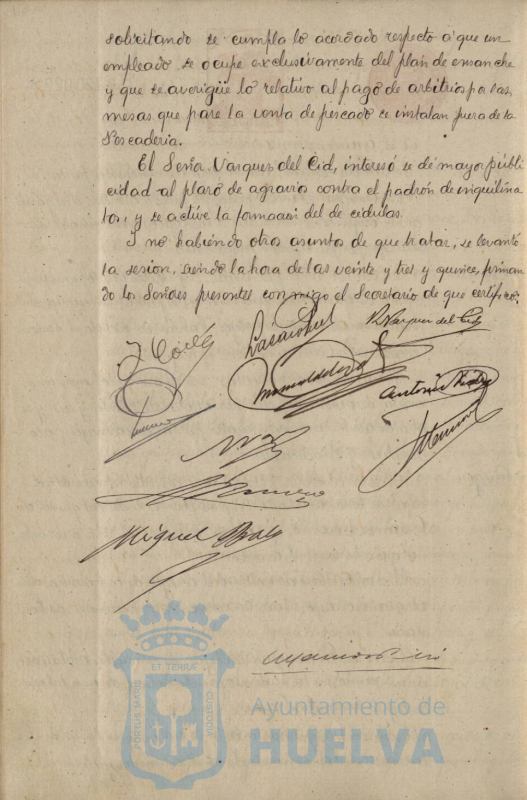 solicitando se cumpla lo acordado respecto á que un
empleado se ocupe exclusivamente del plan de ensanche
y que se averigüe lo relativo al pago de arbitrios por las
mesas que para la venta de pescado se instalan fuera de la
Pescaderia.
El Señor Vazquez del Cid, interesó se dé mayor publi
cidad al plazo de agravio contra el padrón de inquilina
tos, y se active la formación del de cédulas.
Y no habiendo otros asuntos de que tratar, se levantó
la sesion, siendo la hora de las veinte y tres y quince, firman
do los Señores presentes con migo el Secretario de que certifico.
Vazquez del Cid
Antonio
Romero
Miguel
PORTUS MARIS
ET TERRAE
CUSTODIA
Ayuntamiento de
HUELVA